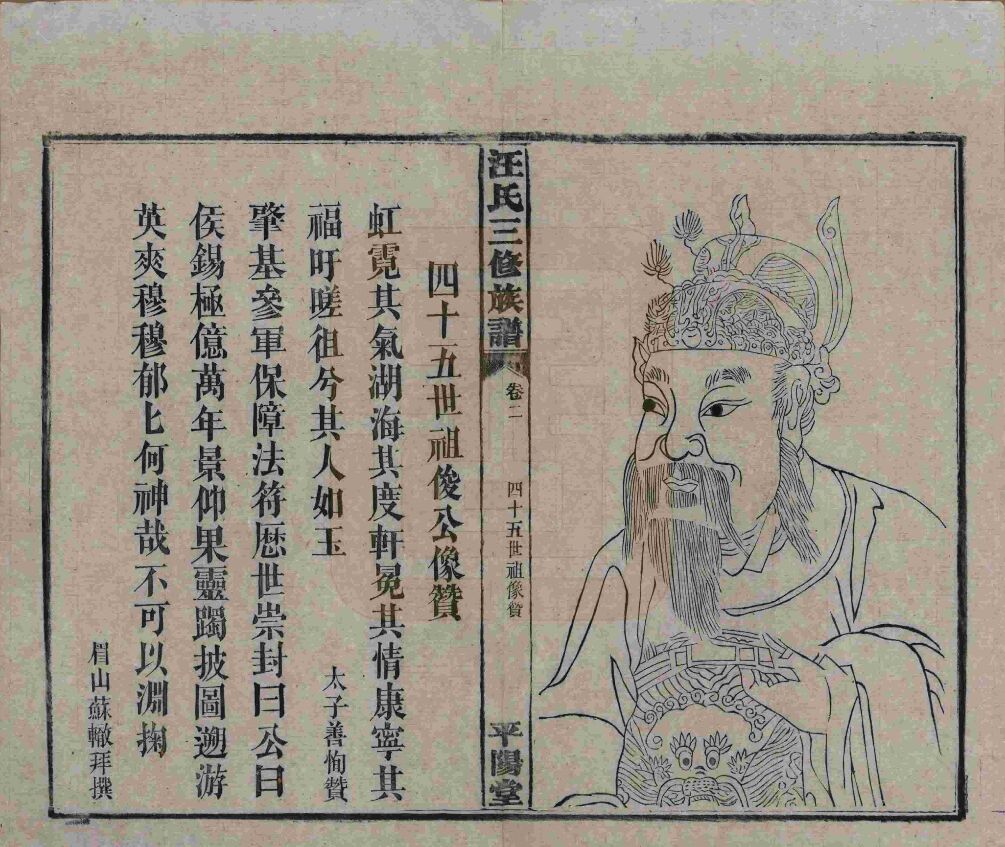 汪氏三修族譜
卷二
四十五世祖像贊
平陽堂
四十五世祖俊公像贊
虹霓其氣湖海其度軒冕其情康寧其
福吁嗟徂兮其人如玉
太子善恂贊
肇基參軍保障法符歷世崇封曰公曰
侯錫極億萬年景仰果靈躅披圖遡游
英爽穆穆郁匕何神哉不可以淵掬
眉山蘇轍拜撰